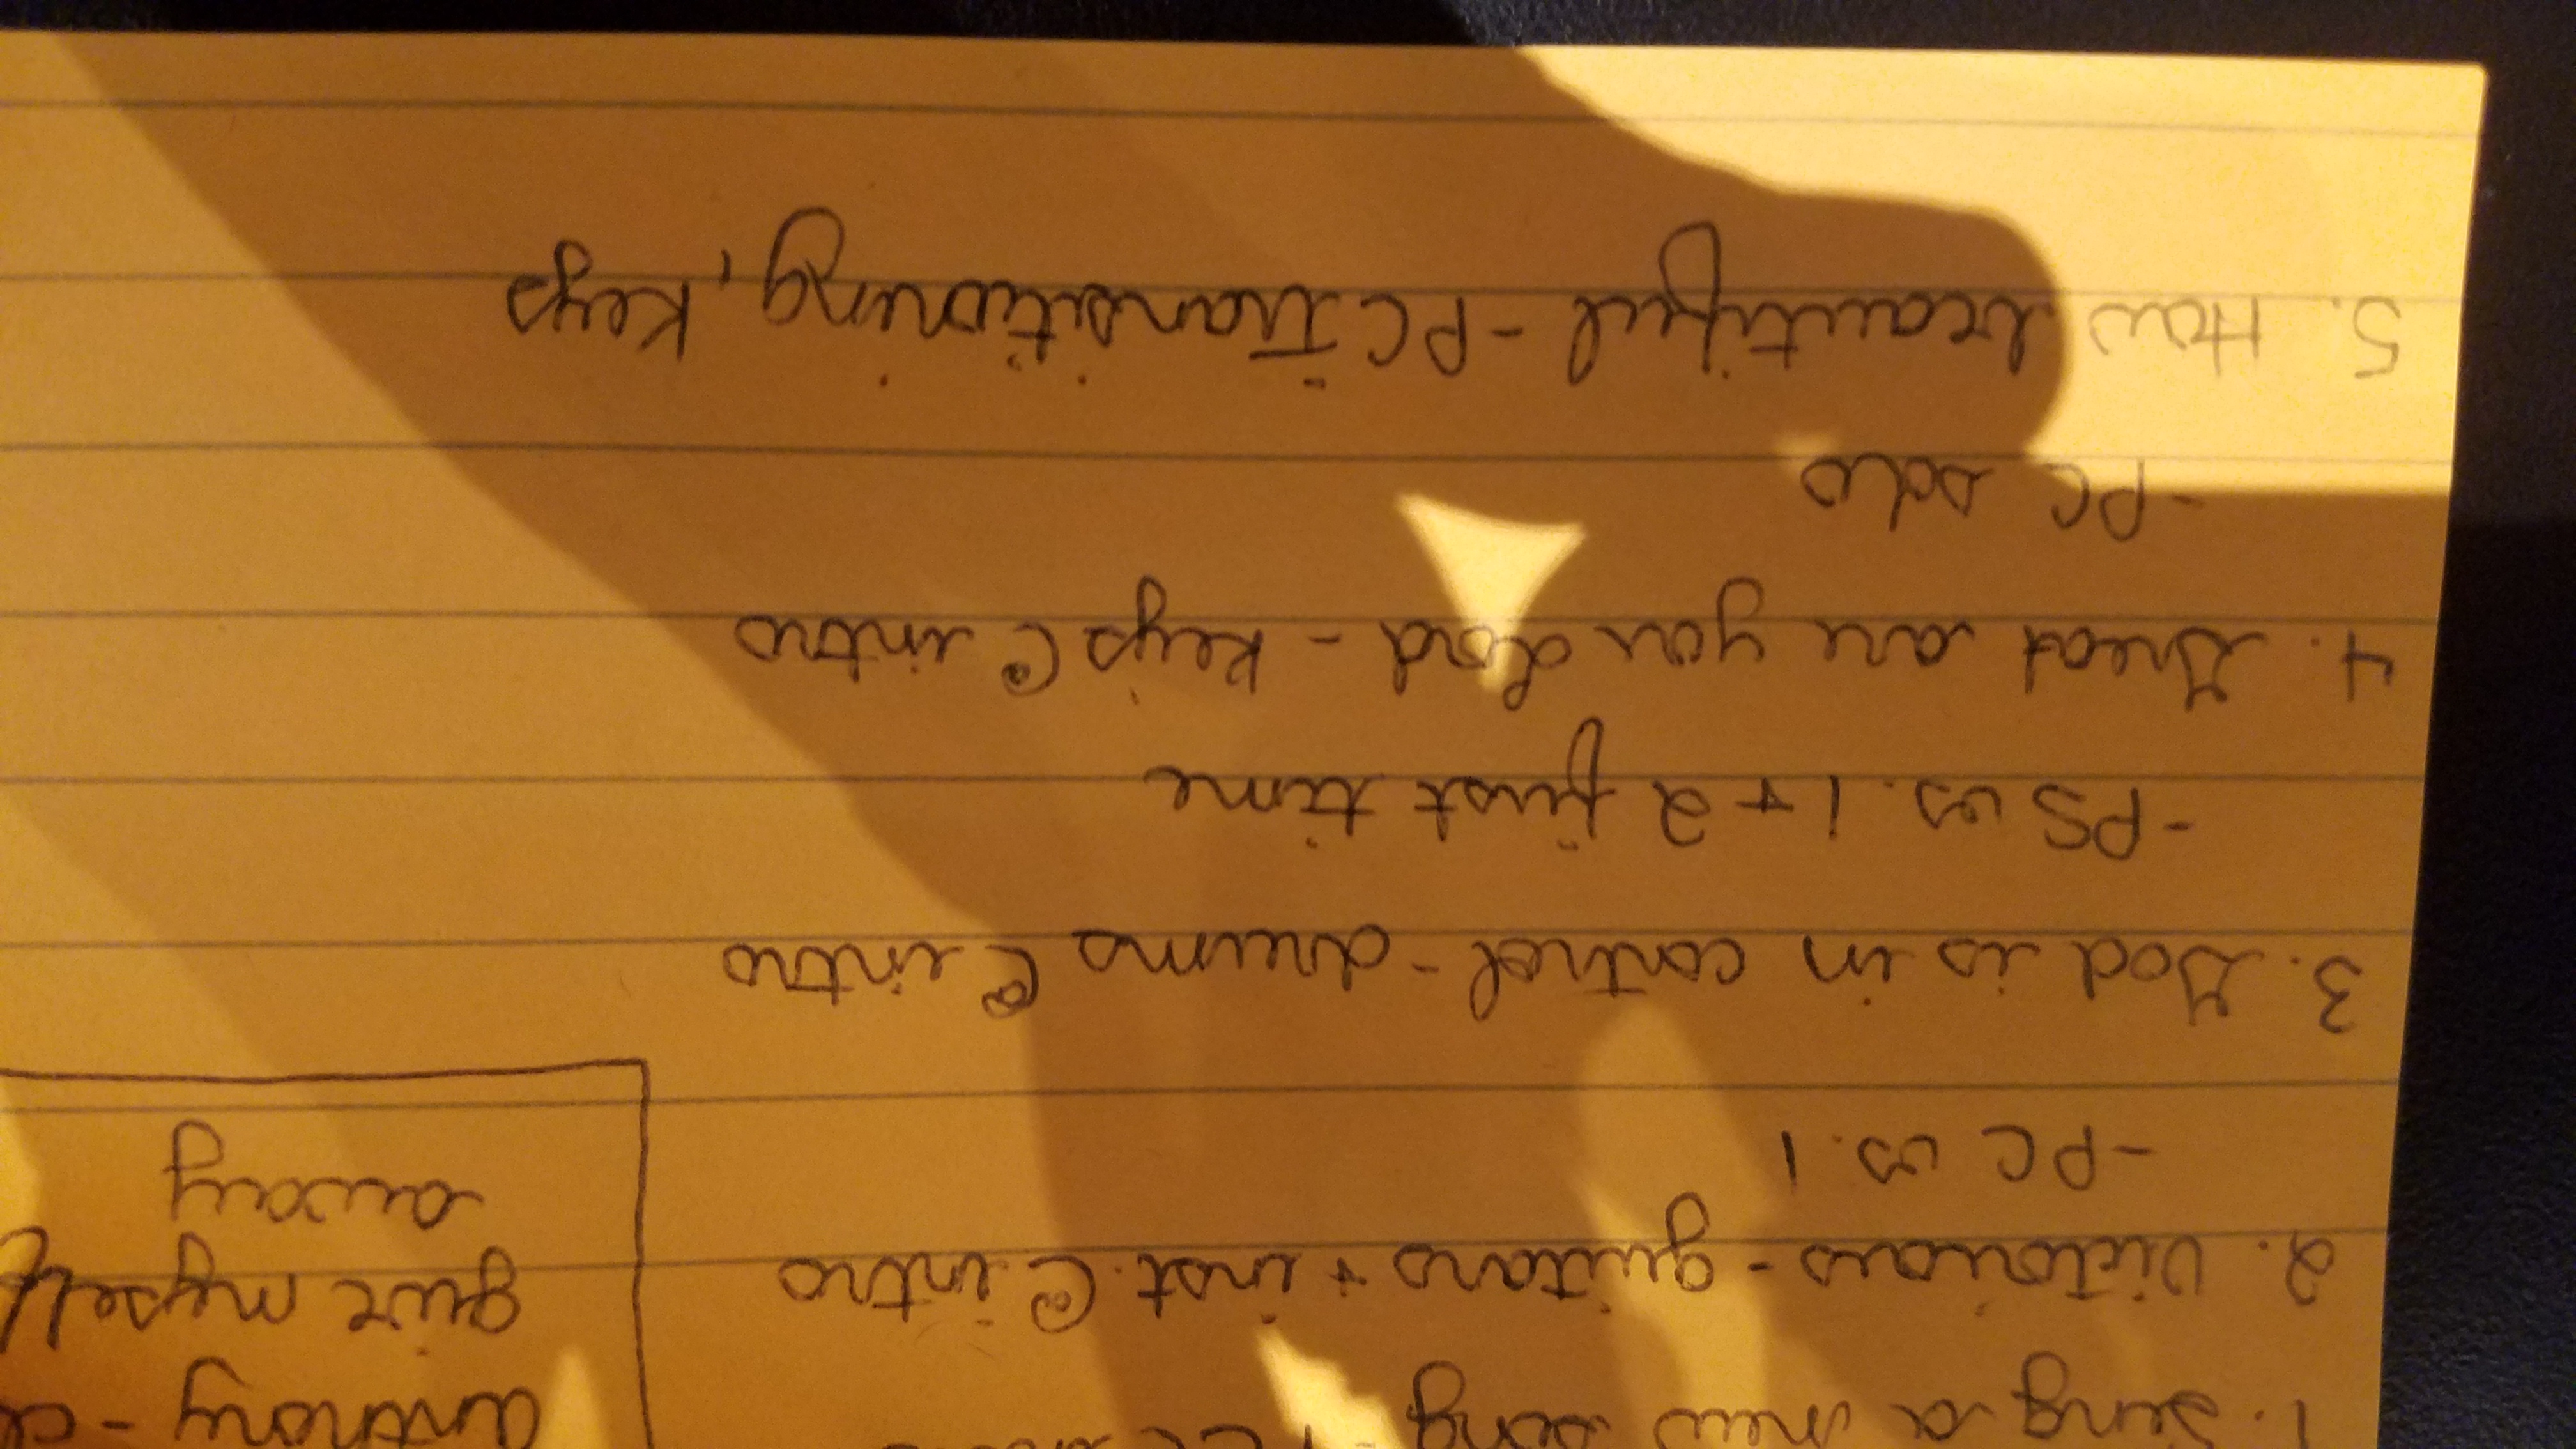 1. Sing a new song
2. Victorious - guitars + inst. @ intro
- PC vs. 1
3. God is in control - drums @ intro
- PS vs. 1 + 2 first time
4. Great are you Lord - Keys @ intro
- PC solo
5. How beautiful - PC transitioning, Keys
Antony -
give myself
away